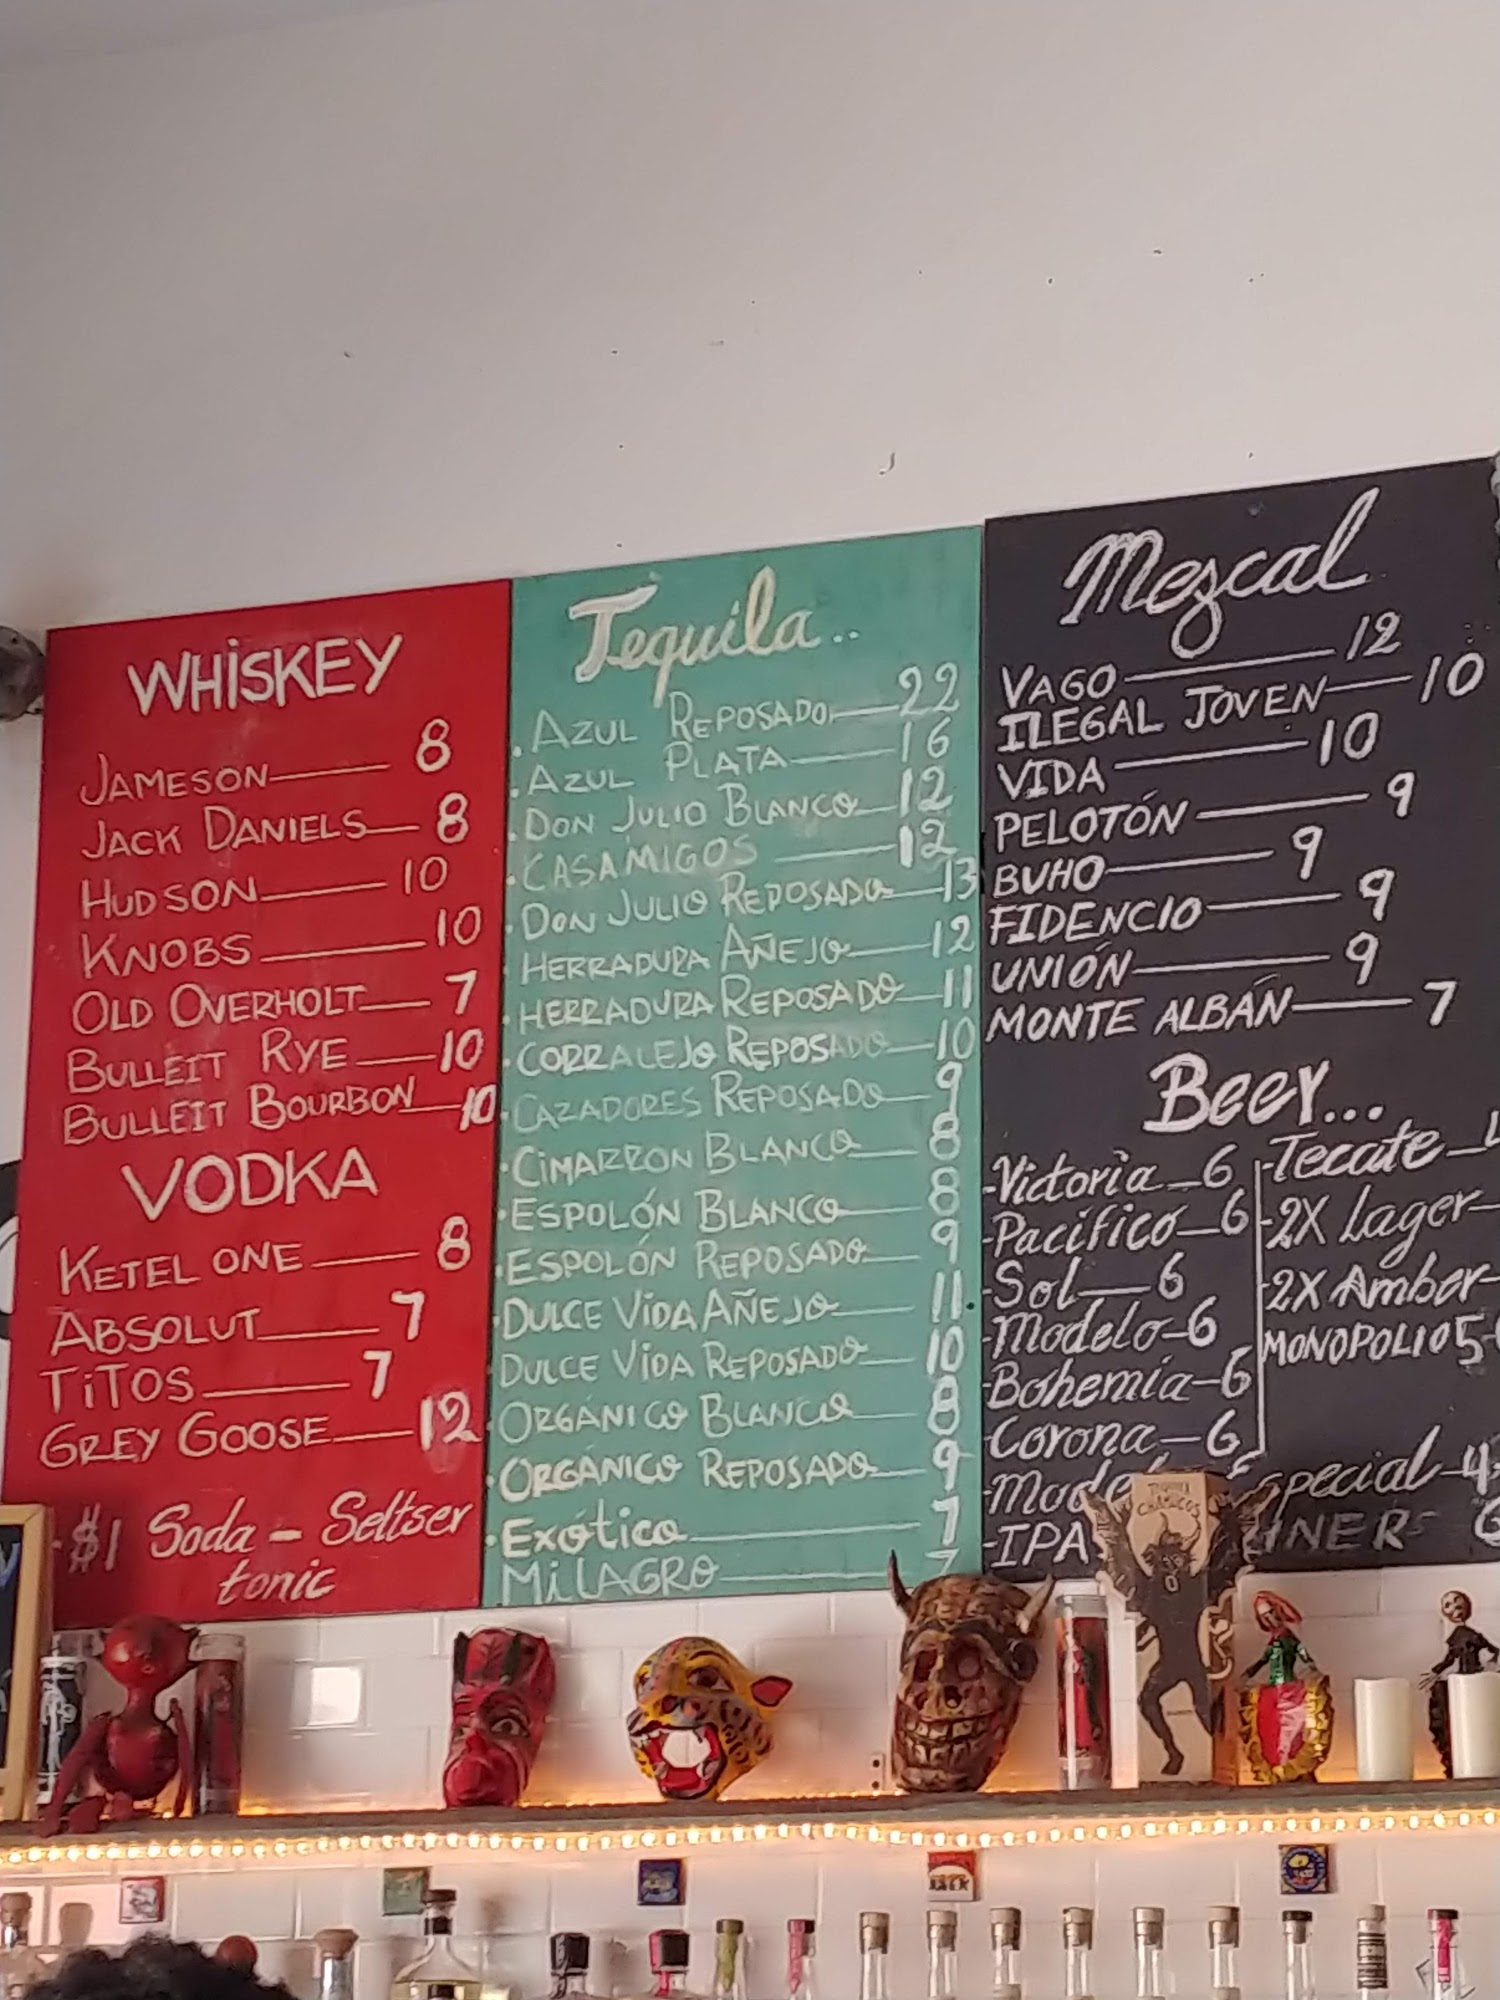 WHiSKEY
JAMESON 8
JACK DANIELS 8
HUDSON 10
KNOBS 10
OLD OVERHOLT 7
BULLEIT RYE 10
BULLEIT BOURBON 10
VODKA
KETEL ONE 8
ABSOLUT 7
TiTOS 7
GREY GOOSE 12
$1 Soda - Seltser
tonic
Tequila..
AZUL REPOSADO 22
AZUL PLATA 16
DON JULIO BLANCO 12
CASAMIGOS 12
DON JULIO REPOSADO 13
HERRADURA AÑEJO 12
HERRADURA REPOSADO 11
CORRALEJO REPOSADO 10
CAZADORES REPOSADO 9
CIMARRON BLANCO 8
ESPOLÓN BLANCO 8
ESPOLÓN REPOSADO 9
DULCE ViDA AÑEJO 11
DULCE ViDA REPOSADO 10
ORGÁNICO BLANCO 8
ORGÁNICO REPOSADO 9
EXÓTICO 7
MiLAGRO 7
Mezcal
VAGO 12
ILEGAL JOVEN 10
VIDA 10
PELOTÓN 9
BUHO 9
FIDENCIO 9
UNIÓN 9
MONTE ALBÁN 7
Beer...
-Victoria 6
-Pacífico 6
-Sol 6
-Modelo 6
-Bohemia 6
-Corona 6
-IPA
-Tecate
-2X Lager
-2X Amber
MONOPOLIO 5
Special 4
TEQUILA
CHAMUCOS